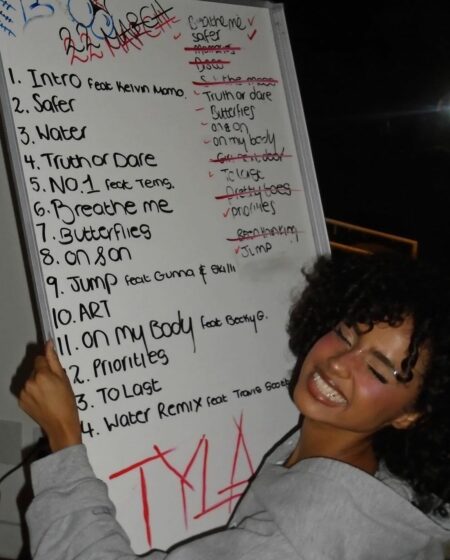 22 MARCH
1. Intro feat Kelvin Momo.
2. Safer
3. Water
4. Truth or Dare
5. NO.1 feat Tems.
6. Breathe me
7. Butterflies
8. on & on
9. Jump feat Gunna & Skilli
10. ART
11. on my Body feat Becky G.
2. Priorities
3. To Last
4. Water Remix feat Travis Scott
TYLA
Breathe me
Safer
Disco
Truth or dare
Butterflies
on & on
on my body
Girl next door
To Last
Pretty toes
Priorities
Been thinking
Jump